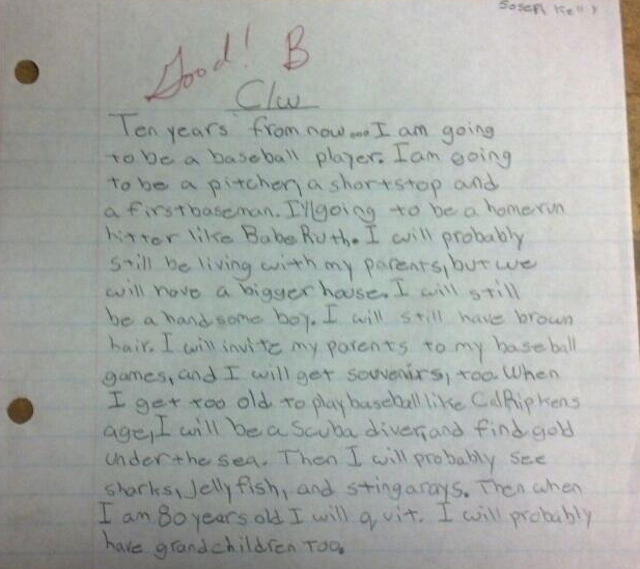 Joseph Kelly
Good! B
C/w
Ten years from now... I am going
to be a baseball player. I am going
to be a pitcher, a shortstop and
a firstbaseman. I'll going to be a homerun
hitter like Babe Ruth. I will probably
still be living with my parents, but we
will have a bigger house. I will still
be a handsome boy. I will still have brown
hair. I will invite my parents to my baseball
games, and I will get souvenirs, too. When
I get too old to play baseball like Cal Ripkens
age, I will be a Scuba diver, and find gold
under the sea. Then I will probably see
sharks, Jelly fish, and stingarays. Then when
I am 80 years old I will quit. I will probably
have grandchildren too.